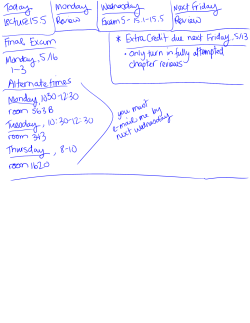 Today
Lecture 15.5
Monday
Review
Wednesday
Exam 5 - 15.1-15.5
Next Friday
Review
Final Exam
Monday, 5/16
1-3
* Extra Credit due next Friday, 5/13
• only turn in fully attempted
chapter reviews
Alternate times
Monday, 10:30-12:30
room 363B
Tuesday, 10:30-12:30
room 343
Thursday, 8-10
room 1620
you must
e-mail me by
next Wednesday